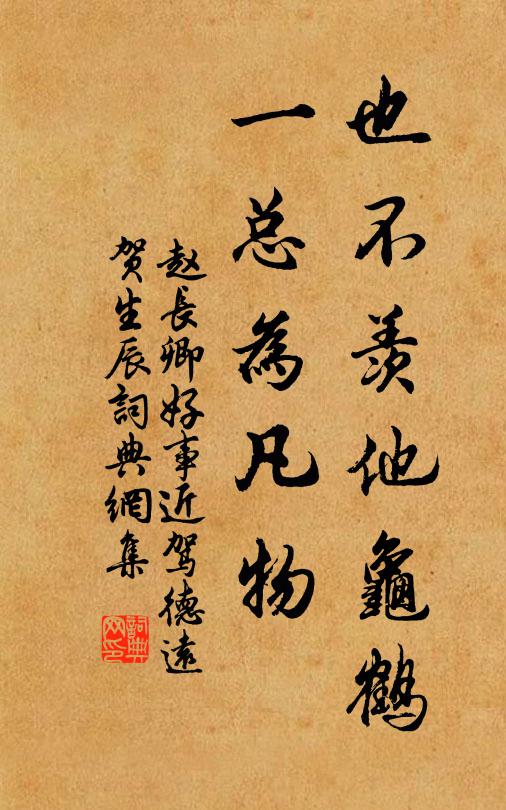 也不羨他龜鶴
一总為凡物
赵長卿好事近駕德遠
贺生辰詞典網集
詞典网印